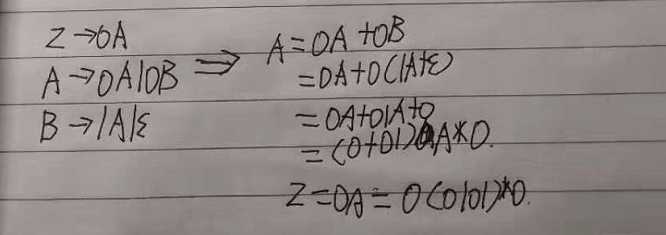 Z→0A
A→0A|0B
B→1A|ε
⇒
A=0A+0B
=0A+0(1A+ε)
=0A+01A+0
=(0+01)A*0.
Z=0A=0(0|01)*0.